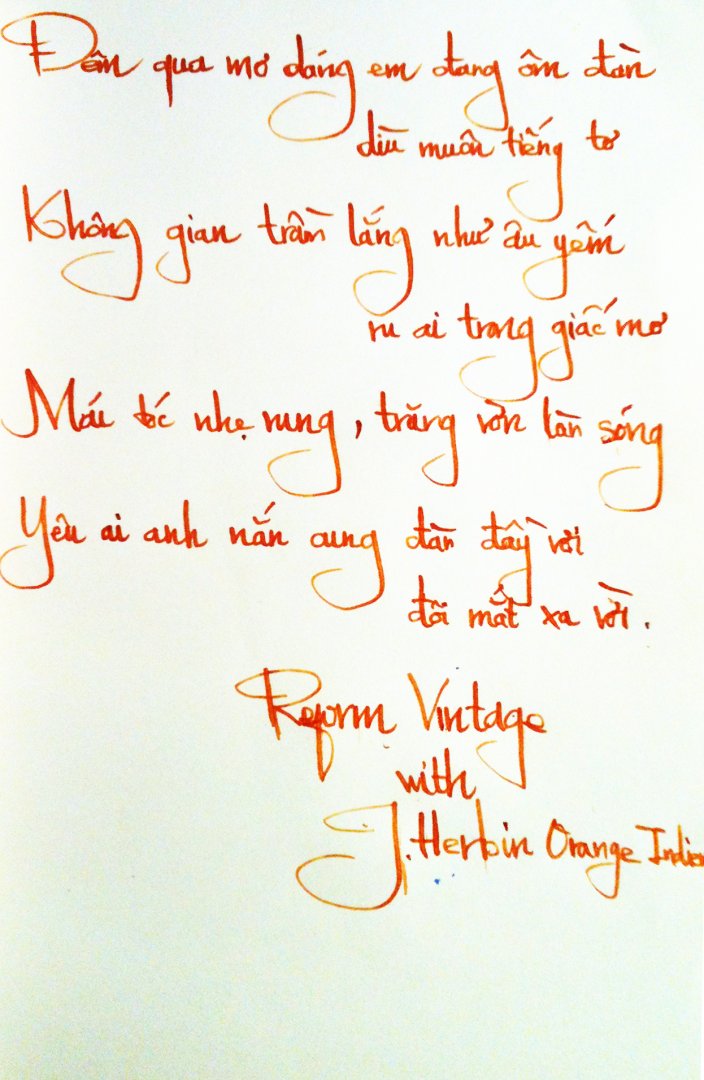 Đêm qua mơ dáng em đang ôm đàn
dìu muôn tiếng tơ
Không gian trầm lắng như âu yếm
ru ai trong giấc mơ
Mái tóc nhẹ rung, trăng vờn làn sóng
Yêu ai anh nắn cung đàn đầy vơi
đôi mắt xa vời.
Reform Vintage
with
J. Herbin Orange Indien